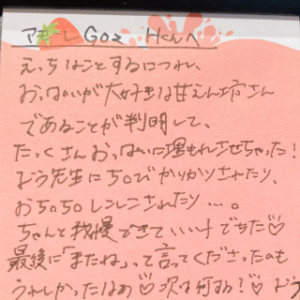 えっちなことするにつれ、
おっぱいが大好きな甘えん坊さん
であることが判明して、
たっくさんおっぱいに埋もれさせちゃった!
よう先生にちくびカリカリされたり、
おちんちんしこしこされたり…。
ちゃんと我慢できていい子でちた♡
最後に「またね」って言ってくださったのも
うれしかったなぁ♡次は何する?♡よう